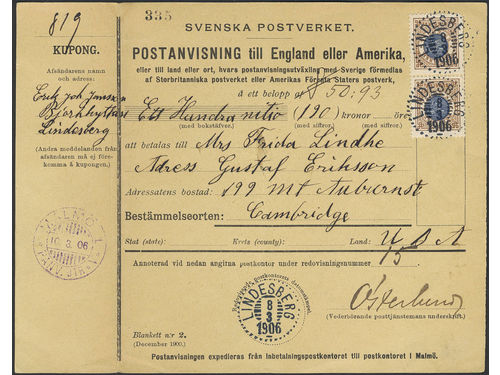 819
KUPONG.
Afsändarens namn
och adress:
Erik Joh. Jansson
Björkhyttan
Lindesberg
(Andra meddelanden från
afsändaren må ej före-
komma å kupongen.)
MALMÖ 1
10.3.06
335
SVENSKA POSTVERKET.
POSTANVISNING till England eller Amerika,
eller till land eller ort, hvars postanvisningsutväxling med Sverige förmedlas
af Storbritanniska postverket eller Amerikas Förenta Staters postverk,
å ett belopp af $ 50:93
Ett Hundra nitio (190) kronor öre
(med bokstäfver.) (med siffror.) (med siffror.)
att betalas till Mrs Frida Lindhe
Adress Gustaf Eriksson
Adressatens bostad: 199 Mt Auburnst
Bestämmelseorten: Cambridge
Stat (state): Krets (county): Land: U S A
Annoterad vid nedan angifna postkontor under redovisningsnummer 15
Österlund
(Vederbörande posttjänstemans underskrift.)
LINDESBERG
8
3
1906
LINDESBERG
1906
LINDESBERG
8
3
1906
Blankett n:r 2.
(December 1900.)
Postanvisningen expedieras från Inbetalningspostkontoret till postkontoret i Malmö.